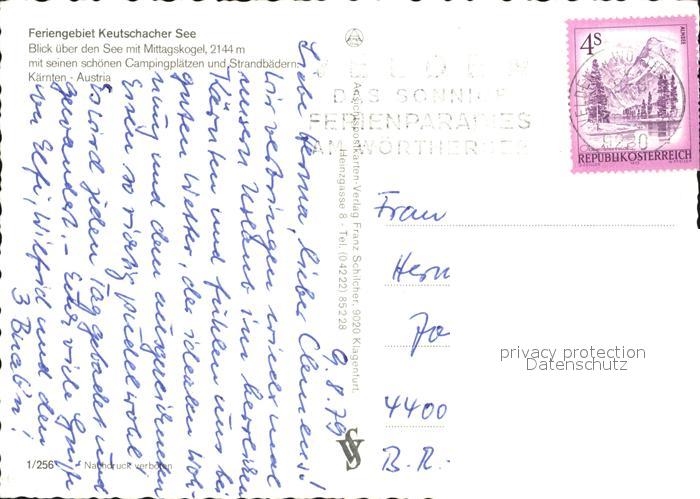 Feriengebiet Keutschacher See
Blick über den See mit Mittagskogel, 2144 m
mit seinen schönen Campingplätzen und Strandbädern
Kärnten - Austria
VELDEN
DAS SONNIGE
FERIENPARADIES
AM WÖRTHERSEE
4s
ALMSEE
REPUBLIK ÖSTERREICH
9220
9.8.79
Liebe Herma, lieber Clemens!
Wir verbringen wieder mal
unseren Urlaub im herrlichen
Kärnten und fühlen uns bei
guten Wetter, der idealen Woh-
nung und dem ausgezeichneten
Essen so richtig pudelwohl!
Es wird jeden Tag gebadet und
gewandert. - Euch viele Grüße
von Elfi, Wilfrid und den
3 Buab'n!
Ansichtspostkarten-Verlag Franz Schilcher, 9020 Klagenfurt,
Heinzgasse 8 - Tel. (04222) 85228
Frau
Herrn
4400
B.R.-
privacy protection
Datenschutz
1/256
Nachdruck verboten